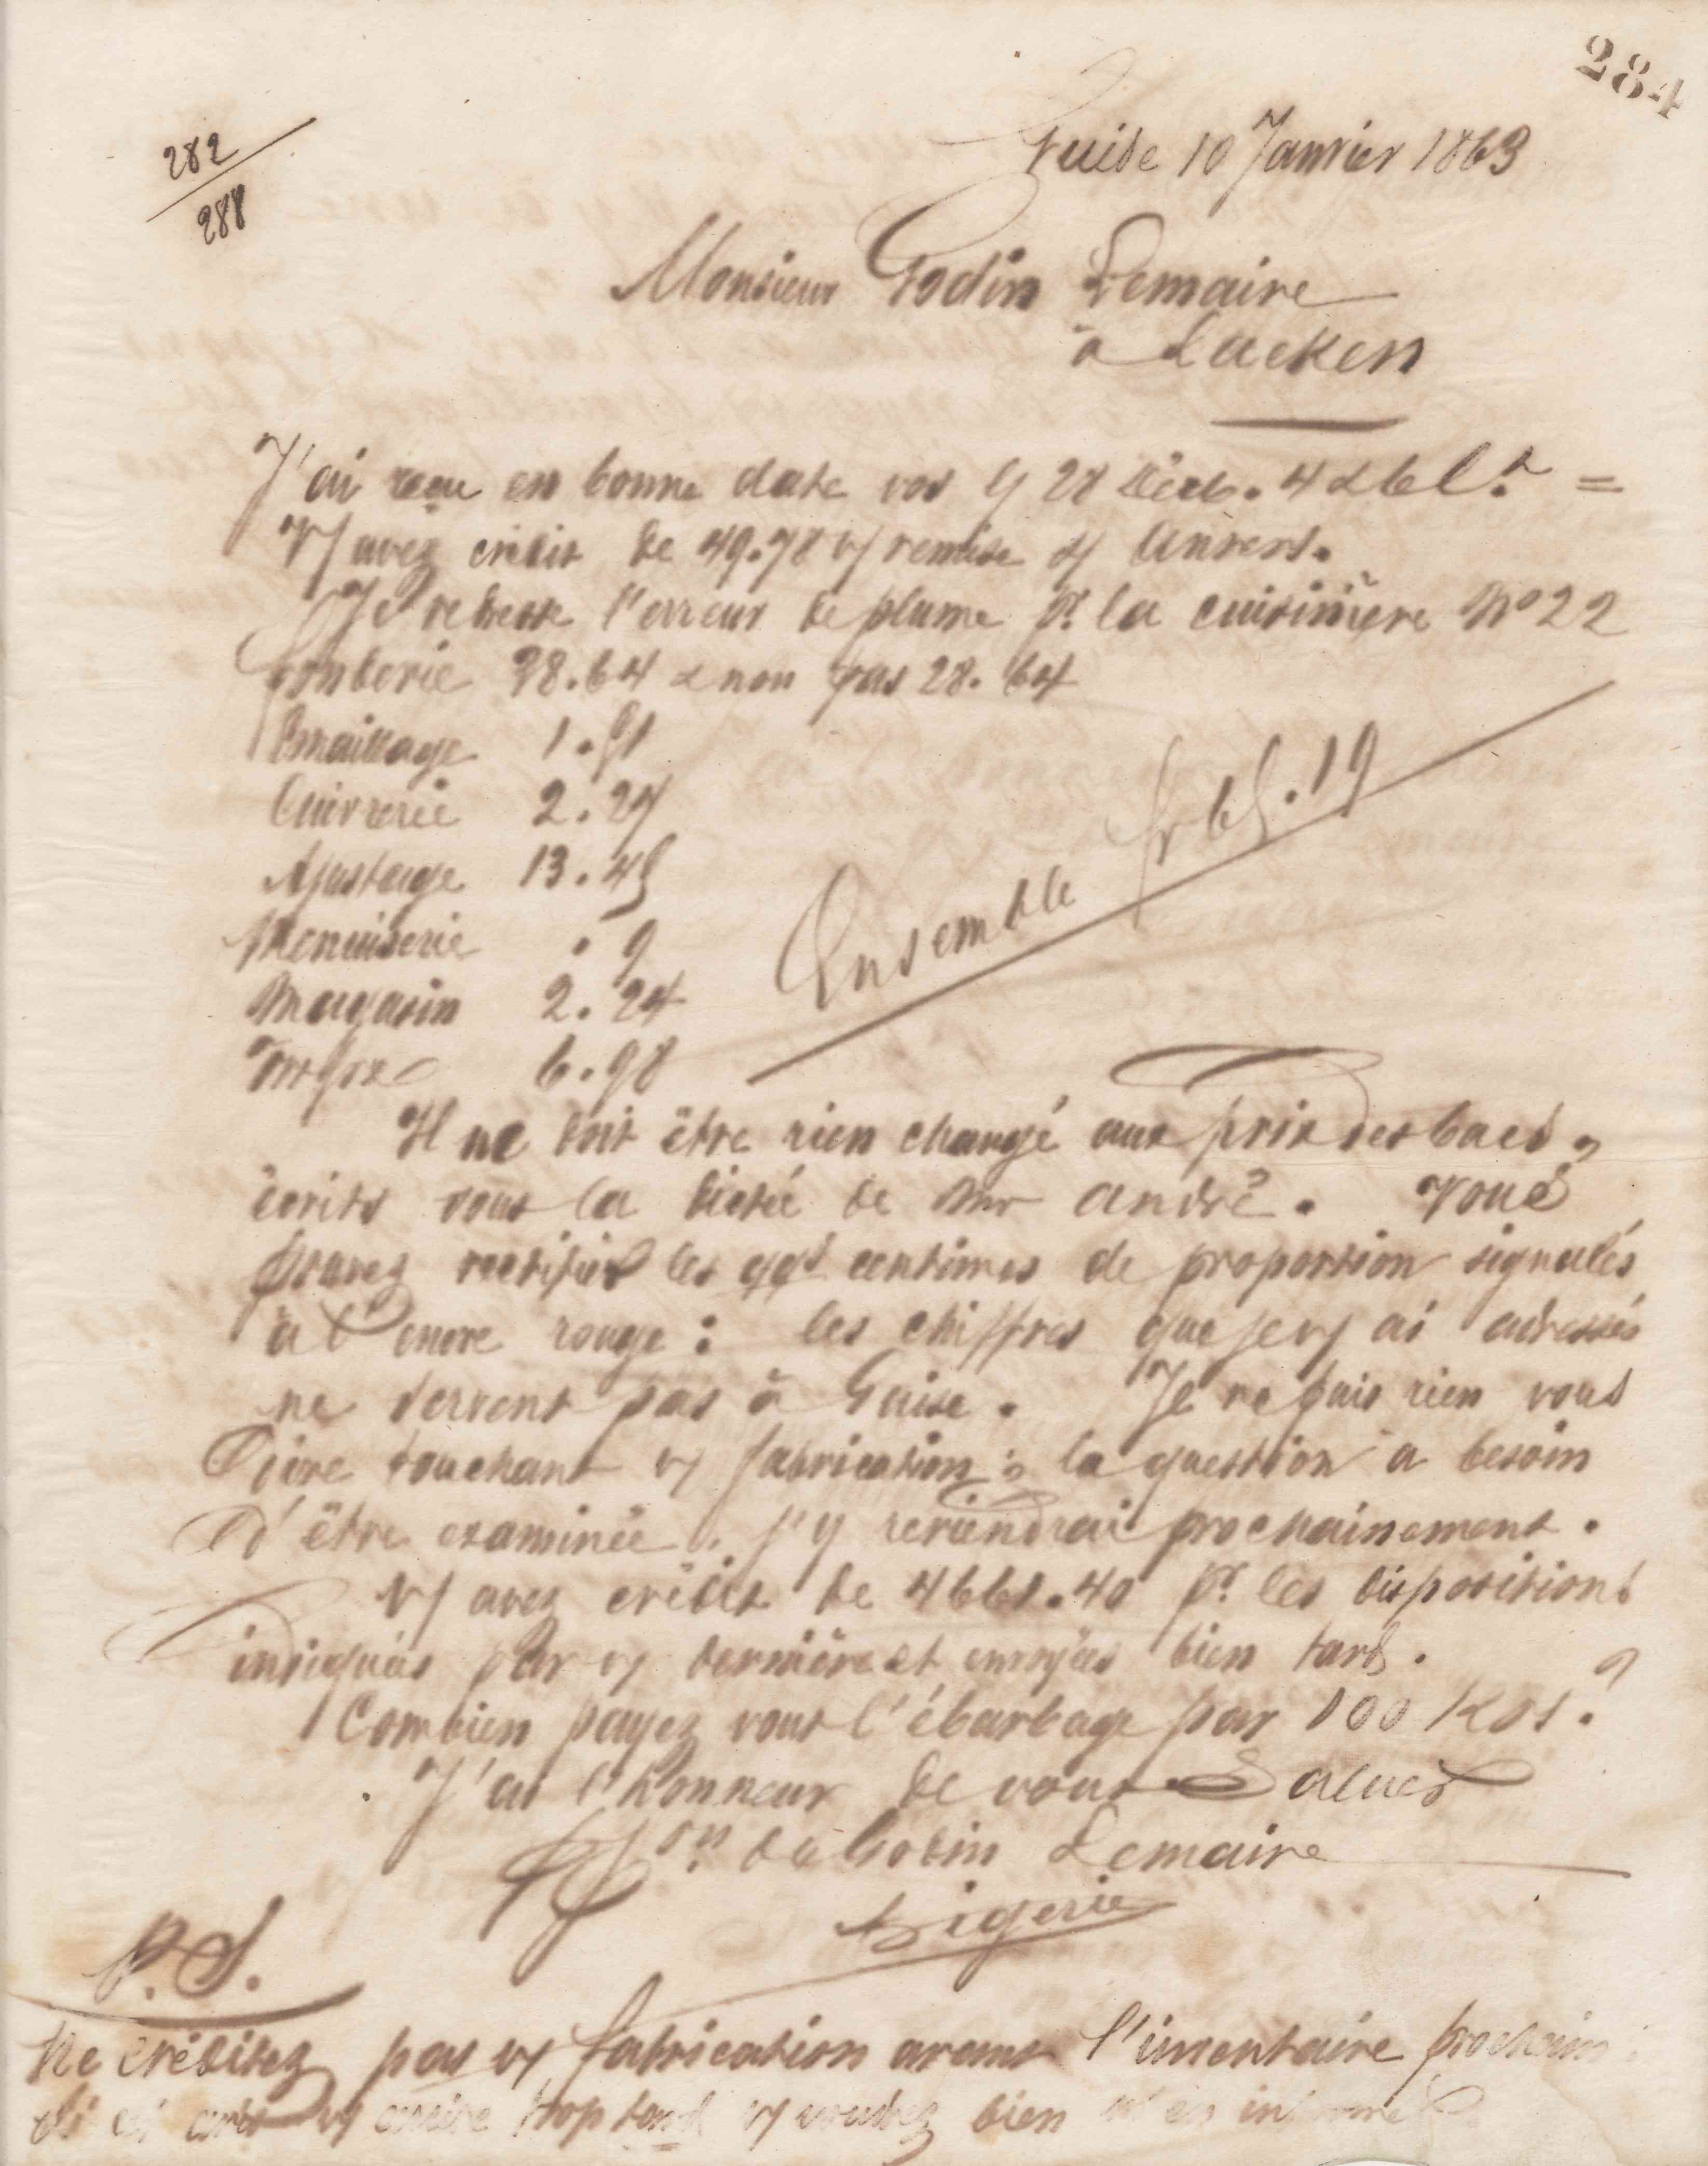 284
282
288
Guise 10 Janvier 1863
Monsieur Godin Lemaire
à Laeken
J'ai reçu en bonne date vos 28 Décb. 4 & 6 Ct =
V/ avez crédit de 49.78 v/ remise s/ Anvers.
Je redresse l'erreur de plume pr la cuisinière No 22
fonderie 38.64 & non pas 28.64
Emaillage 1.51
Cuivrerie 2.24
Ajustage 13.45
Menuiserie . 9
Magasin 2.24
6.98
Ensemble fr 65.19
Il ne doit être rien changé aux prix des bacs,
écrits sous la dictée de Mr André. Vous
pouvez rectifier les qqs centimes de proportion signalés
à l'encre rouge : les chiffres que je v/ ai adressés
ne servent pas à Guise. Je ne puis rien vous
dire touchant v/ fabrication : la question a besoin
d'être examinée. J'y reviendrai prochainement.
V/ avez crédit de 4661.40 pr les dispositions
indiquées par v/ dernière et envoyées bien tard.
Combien payez vous l'ébarbage par 100 Kos ?
J'ai l'honneur de vous saluer
Pon de Godin Lemaire
P.S.
Ne créditez pas v/ fabrication avant l'inventaire prochain
si v/ trop tard v/ voudrez bien m'en informer